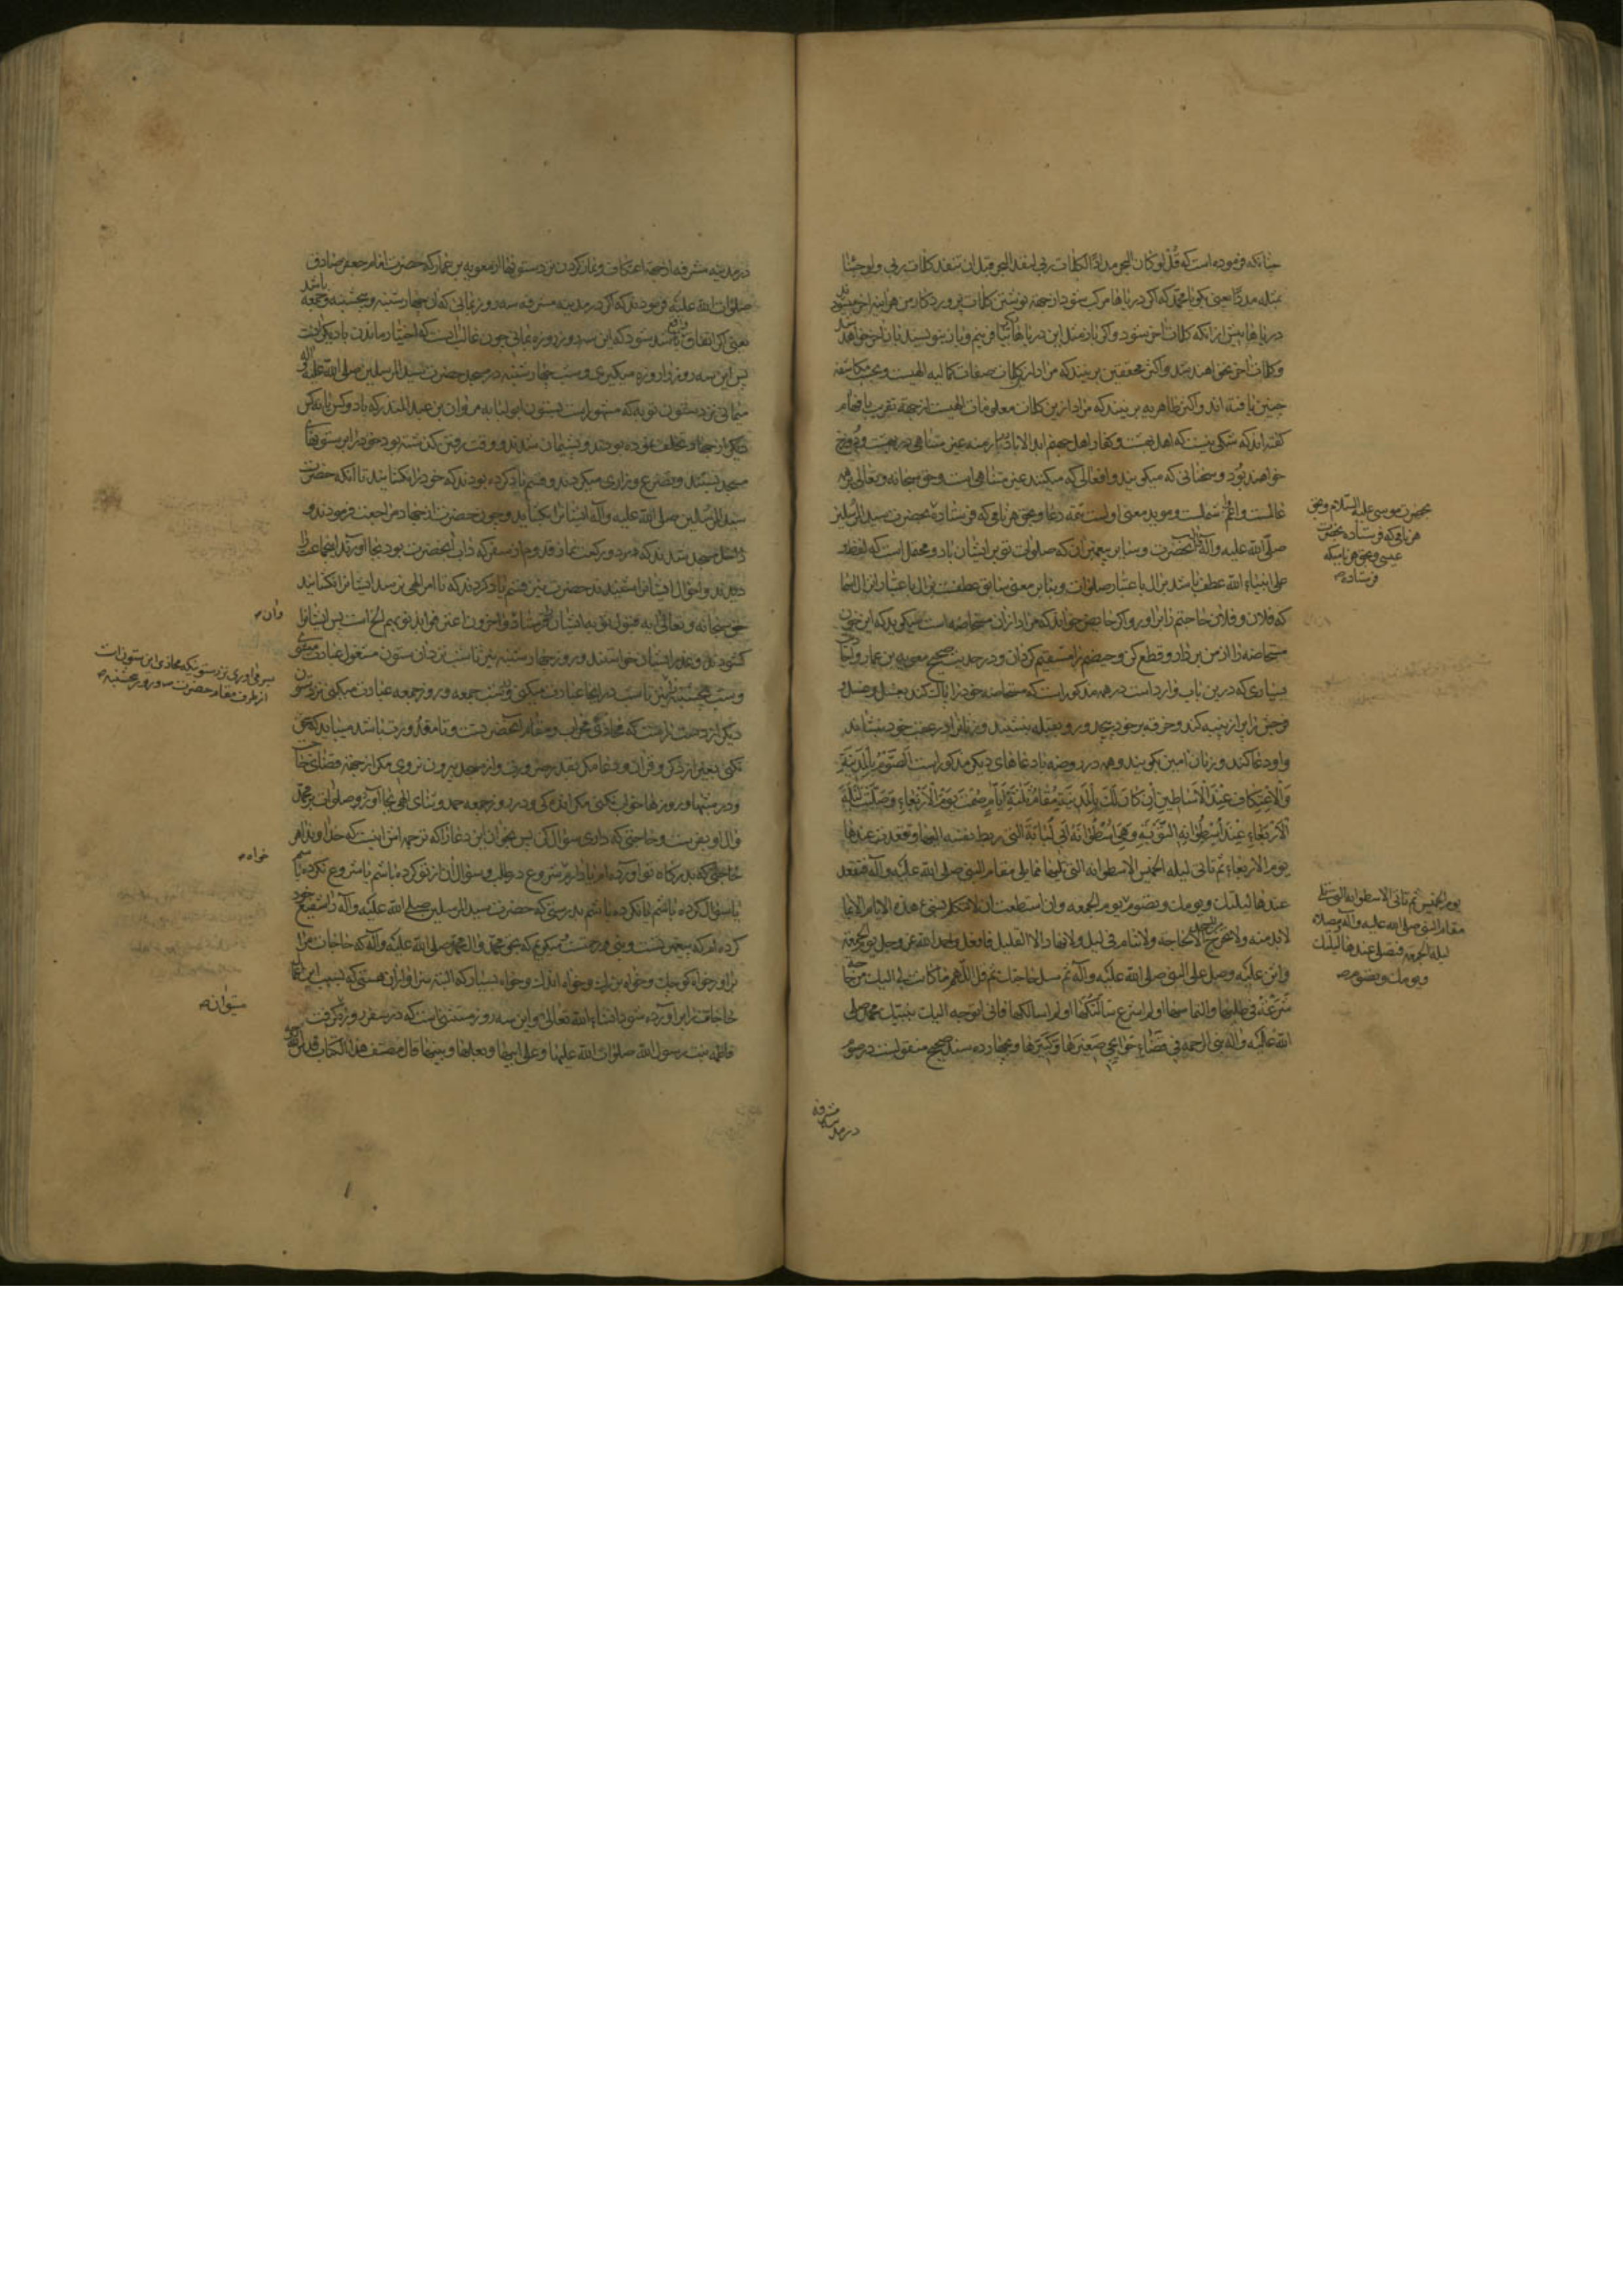 چنانکه فرموده است که قُل لو کان البحر مدادًا لکلمات ربی لنفد البحر قبل ان تنفد کلمات ربی و لو جئنا
بمثله مددًا یعنی بکو یا محمد که اکر دریاها مرکب شود از جهة نوشتن کلمات پروردکار من هر اینه اخر میشود
دریاها پیش از انکه کلمات اخر شود و اکر باز مثل این دریاها بیافرینم و باز بنویسند باز اخر خواهد
و کلمات اخر نخواهد شد و اکثر محققین برینند که مراد از کلمات صفات کمالیه الهیست و بحسب مکاشفه
چنین یافته اند و اکثر ظاهریه برینند که مراد ازین کلمات معلومات الهیست از جهة تقریب بافهام
کفته اند که شکی نیست که اهل بهشت و کفار اهل جهنم ابد الاباد در ازمنه غیر متناهی در بهشت و دوزخ
خواهند بود و سخنانی که میکویند و افعالی که میکنند غیر متناهی است و حق سبحانه و تعالی بر همه
عالمست و اعم اشملست و موید معنی اولست تتمه دعا و بحق هر نامی که فرستادهٔ بحضرت سید المرسلین
صلی الله علیه وآله آنحضرت و بنابرین ممکن که صلوات تو بر ایشان باد و محتمل است که لفظ او
علی انبیاء الله عطف باشد بر ال باعتبار صلوات و بنابر معنی سابق عطفست بر ال باعتبار انزال اسما
که فلان و فلان حاجتم را براور و اکر حایض خواند که مراد ازان مستحاضه است میکوید که این خون
مستحاضه را از من بردار و قطع کن و حیضم را مستقیم کردان و در حدیث صحیح معویه بن عمار و اخبار
بسیاری که درین باب وارد است در همه مذکور است که مستحاضه خود را پاک کند بغسل و غسل
و خون را پر از پنبه کند و خرقه بر خود پیچد و رو بقبله بنشیند و زنانرا در عقب خود بنشاند
و او دعا کند و زنان امین بکویند و همه در روضه با دعاهای دیکر مذکور است الصَّوْمُ بِالْمَدینَةِ
وَالْاِعْتِکافِ عِنْدَ الْاَساطینِ اِنْ کانَ لَکَ بِالْمَدینَةِ مُقامُ ثَلٰثَةِ اَیّامٍ صُمْتَ یَوْمَ الْاَرْبَعاءِ وَصَلَّیْتَ لَیْلَةَ
الْاَرْبَعاءِ عِنْدَ اُسْطُوانَةِ التَّوْبَةِ وَهِیَ اُسْطُوانَةُ اَبی لُبابَةَ الَّتی ربط نفسه الیها و تقعد عندها
یوم الاربعاء ثم تاتی لیله الخمیس الاسطوانه التی تلیها مما یلی مقام النبی صلی الله علیه وآله فتقعد
عندها لیلتک و یومک و تصوم یوم الجمعه و ان استطعت ان لا تتکلم بشیء هذه الایام الا ما
لابد منه و لا تخرج من المسجد الا لحاجه و لا تنام فی لیل و لا نهار الا القلیل فافعل و احمد الله عز و جل یوم الجمعة
واثن علیه و صل علی النبی صلی الله علیه وآله ثم سل حاجتک ثم قل اللهم ما کانت لی الیک من حاجة
شَرَعْتُ فی طلبها و التماسها او لم اشرع سَأَلْتُکَها او لم اسالکها فانی اتوجه الیک بنبیک محمد صلی
الله علیه وآله نبی الرحمة فی قَضٰاءِ حَوٰائِجی صَغیرِها وَ کَبیرِها و بچهارده سند صحیح منقولست در صوم
بحضرت موسی علیه السلام و بحق
هر نامی که فرستاده بحضرت
عیسی و بحق هر نامی که
فرستاده
یوم الخمیس ثم تاتی الاسطوانه التی تلی
مقام النبی صلی الله علیه وآله و مصلاه
لیله الجمعه فتصلی عندها لیلتک
و یومک و تصوم
در مدینه
مشرفه
در مدینه مشرفه از جهة اعتکاف و نماز کردن نزد ستونها از معویه بن عمار که حضرت امام جعفر صادق
صلوات الله علیه فرمودند که اکر در مدینه مشرفه سه روز بمانی که ان چهارشنبه و پنجشنبه و جمعه باشد
یعنی اکر اتفاق واقع شود که این سه روز روزه بمانی چون غالب انست که اختیار ماندن با دیکرانست
پس این سه روز را روزه میکیری و شب چهارشنبه در مسجد حضرت سید المرسلین صلی الله علیه وآله
میمانی نزد ستون توبه که مشهور است بستون ابو لبابه مروان بن عبد المنذر که با دو کس یا نه کس
دیکر از جهاد تخلف نموده بودند و پشیمان شدند و وقت رفتن کذشته بود خود را بر ستونهای
مسجد بستند و تضرع و زاری میکردند و قسم یاد کرده بودند که خود را نکشایند تا انکه حضرت
سید المرسلین صلی الله علیه وآله ایشانرا بکشاید و چون حضرت از جهاد مراجعت فرمودند و
داخل مسجد شدند که دو رکعت نماز قدوم از سفر که داب آنحضرت بود بجا اورند انجماعت را
دیدند و احوال ایشانرا شنیدند حضرت نیز قسم یاد کردند که تا امر الهی نرسد ایشانرا نکشایند
حق سبحانه و تعالی ایه قبول توبه ایشان فرستاد و اخرون اعترفوا بذنوبهم الخ است پس ایشانرا
کشودند و عذر ایشان خواستند و روز چهارشنبه نیز تا شب نزد ان ستون مشغول عبادت میشوی
و شب پنجشنبه نیز تا شب در انجا عبادت میکنی و شب جمعه و روز جمعه عبادت میکنی نزد ستون
دیکر از دست راست که محاذی محراب و مقام آنحضرتست و تا مقدورت باشد میباید که سخن
نکنی بغیر از ذکر و قران و دعا مکر بقدر ضرورت و از مسجد بیرون نروی مکر از جهة قضای حاجت
و در شبها و روزها خواب نکنی مکر اندکی و در روز جمعه حمد و ثنای الهی بجا اور و صلوات بر محمد
و ال او بفرست و حاجتی که داری سؤال کن پس بخوان این دعا را که ترجمه اش اینست که خداوندا هر
حاجتی که بدرکاه تو اورده ام یا دارم شروع در طلب و سؤال ان از تو کرده باشم یا شروع نکرده باشم
یا سؤال کرده باشم یا نکرده باشم بدرستی که حضرت سید المرسلین صلی الله علیه وآله را شفیع خود
کرده ام که پیغمبر تست و نبی رحمتست میکویم که بحق محمد و ال محمد صلی الله علیه وآله که حاجات مرا
براور خواه کوچک و خواه بزرک و خواه اندک و خواه بسیار که البته سزاوار ان هستی که بسبب این دعا
حاجات براورده شود انشاء الله تعالی و این سه روز مستثنی است که در سفر روزه کرفت
فاطمه بنت رسول الله صلوات الله علیها و علی ابیها و بعلها و بنیها قال مصنف هذا الکتاب قدس الله روحه
وان
سر می اوری نزد ستونیکه محاذی این ستونست
از طرف مقام حضرت و روز پنجشنبه
خواه
میتوان